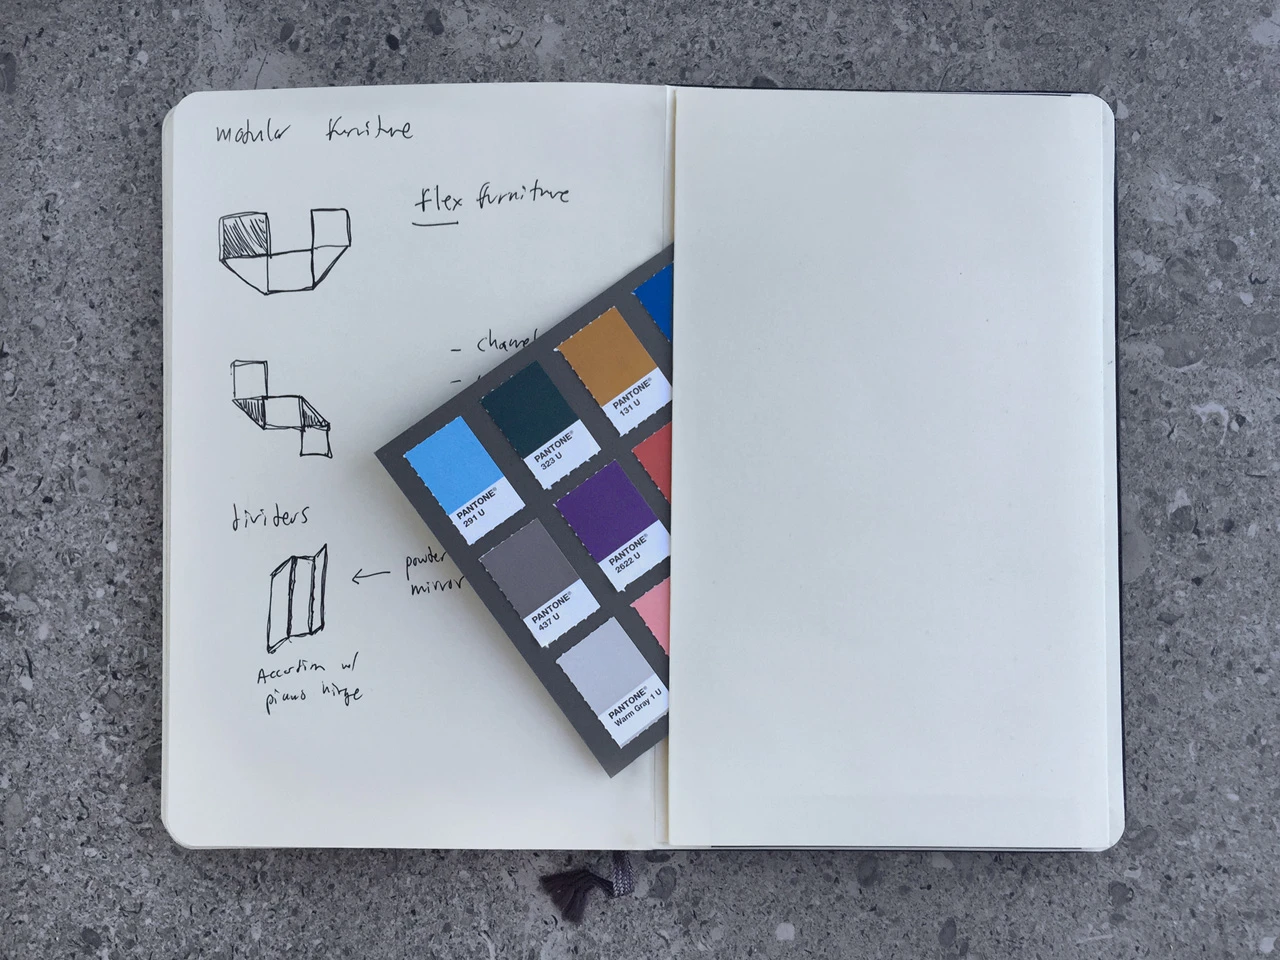 modular furniture
flex furniture
dividers
powder
mirror
Accordion w/
piano hinge
PANTONE®
131 U
PANTONE®
323 U
PANTONE®
291 U
PANTONE®
2622 U
PANTONE®
437 U
PANTONE®
Warm Gray 1 U